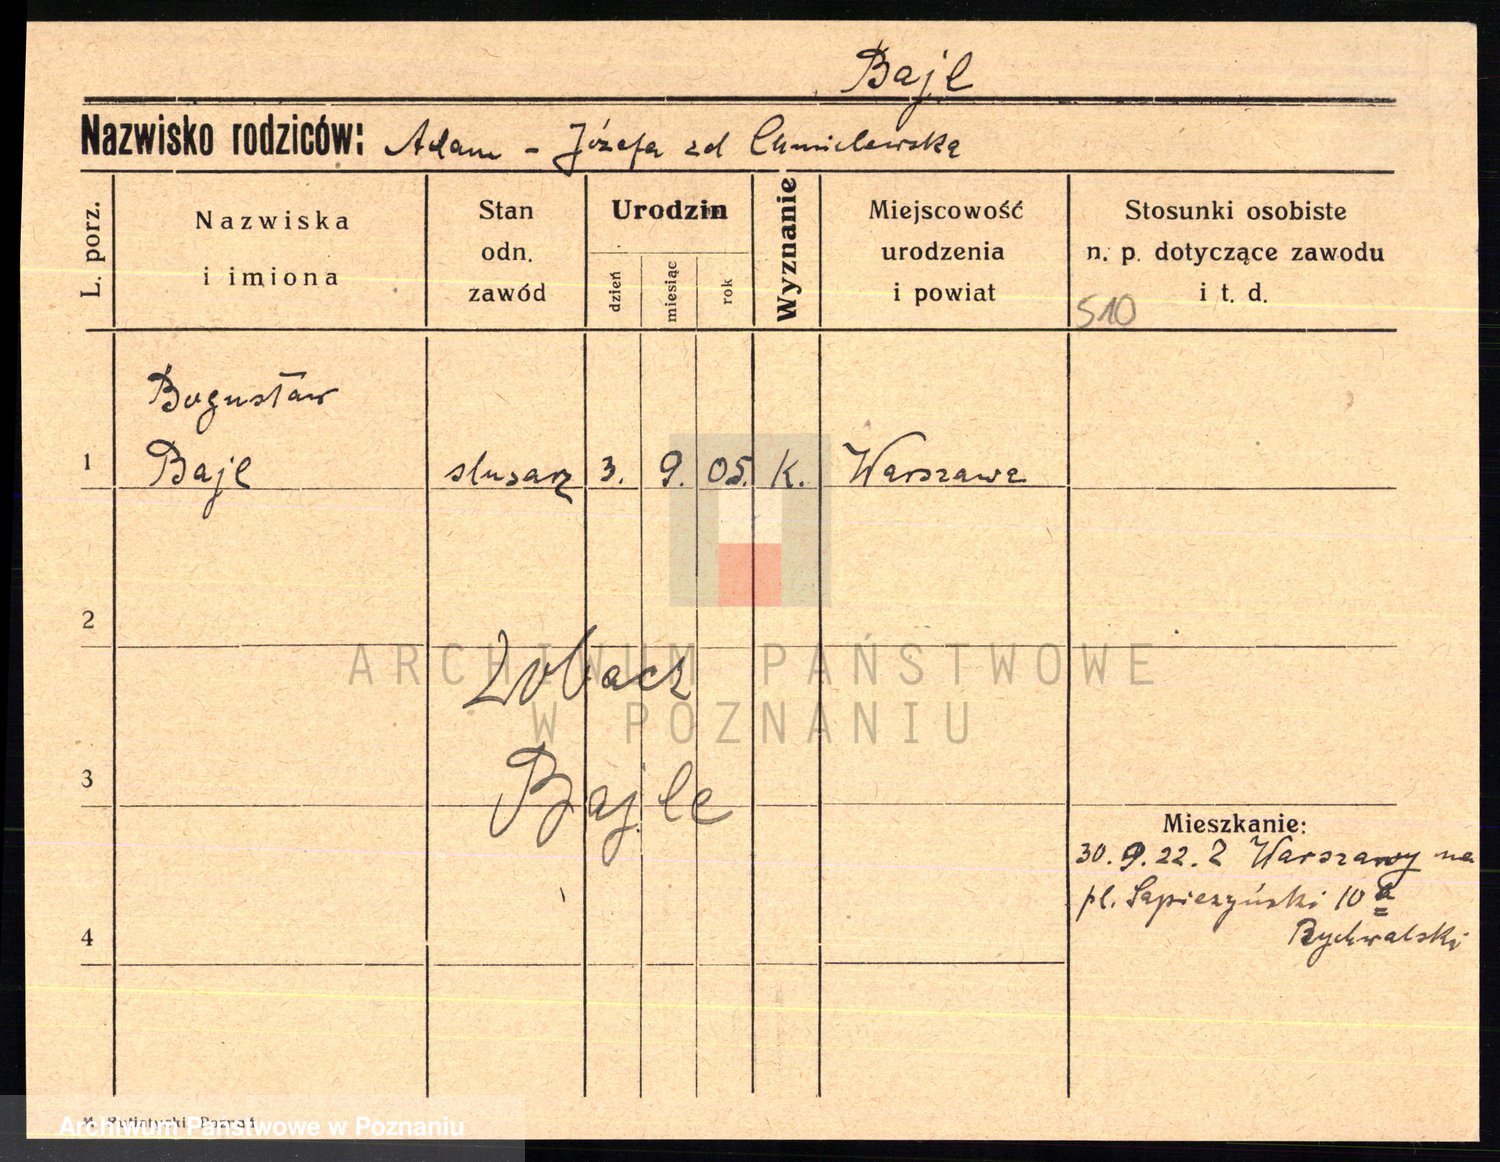 Bajl
Nazwisko rodziców: Adam - Józefa zd Chmielewska
L. porz.
Nazwiska
i imiona
Stan
odn.
zawód
Urodzin
dzień
miesiąc
rok
Wyznanie
Miejscowość
urodzenia
i powiat
Stosunki osobiste
n. p. dotyczące zawodu
i t. d.
510
Bogusław
1 Bajl slusarz 3. 9. 05. K. Warszawa
2
ARCHIWUM PAŃSTWOWE
W POZNANIU
Zobacz
3
Bajle
Mieszkanie:
30. 9. 22. Z Warszawy na
pl. Sapieżyński 10 a
Rychwalski
4
Poznań
Archiwum Państwowe w Poznaniu